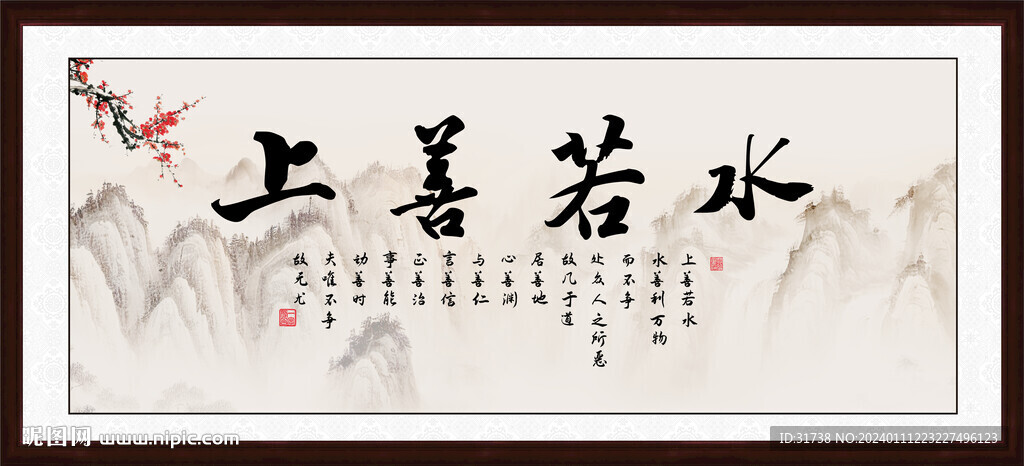 上善若水
上善若水
水善利万物
而不争
处众人之所恶
故几于道
居善地
心善渊
与善仁
言善信
正善治
事善能
动善时
夫唯不争
故无尤
昵图网 www.nipic.com
ID:31738 NO:20240111223227496123